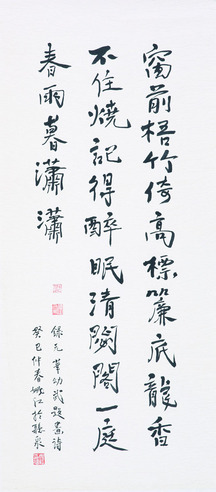 窗前梧竹倚高標簾底龍香
不住燒記得醉眠清閟閣一庭
春雨暮瀟瀟
錄元華幼武題畫詩
癸巳仲春